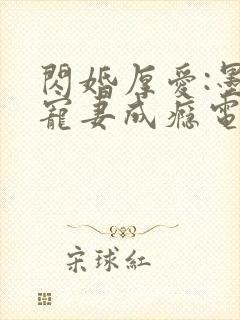 閃婚厚愛:墨
寵妻成癮電
宋球紅